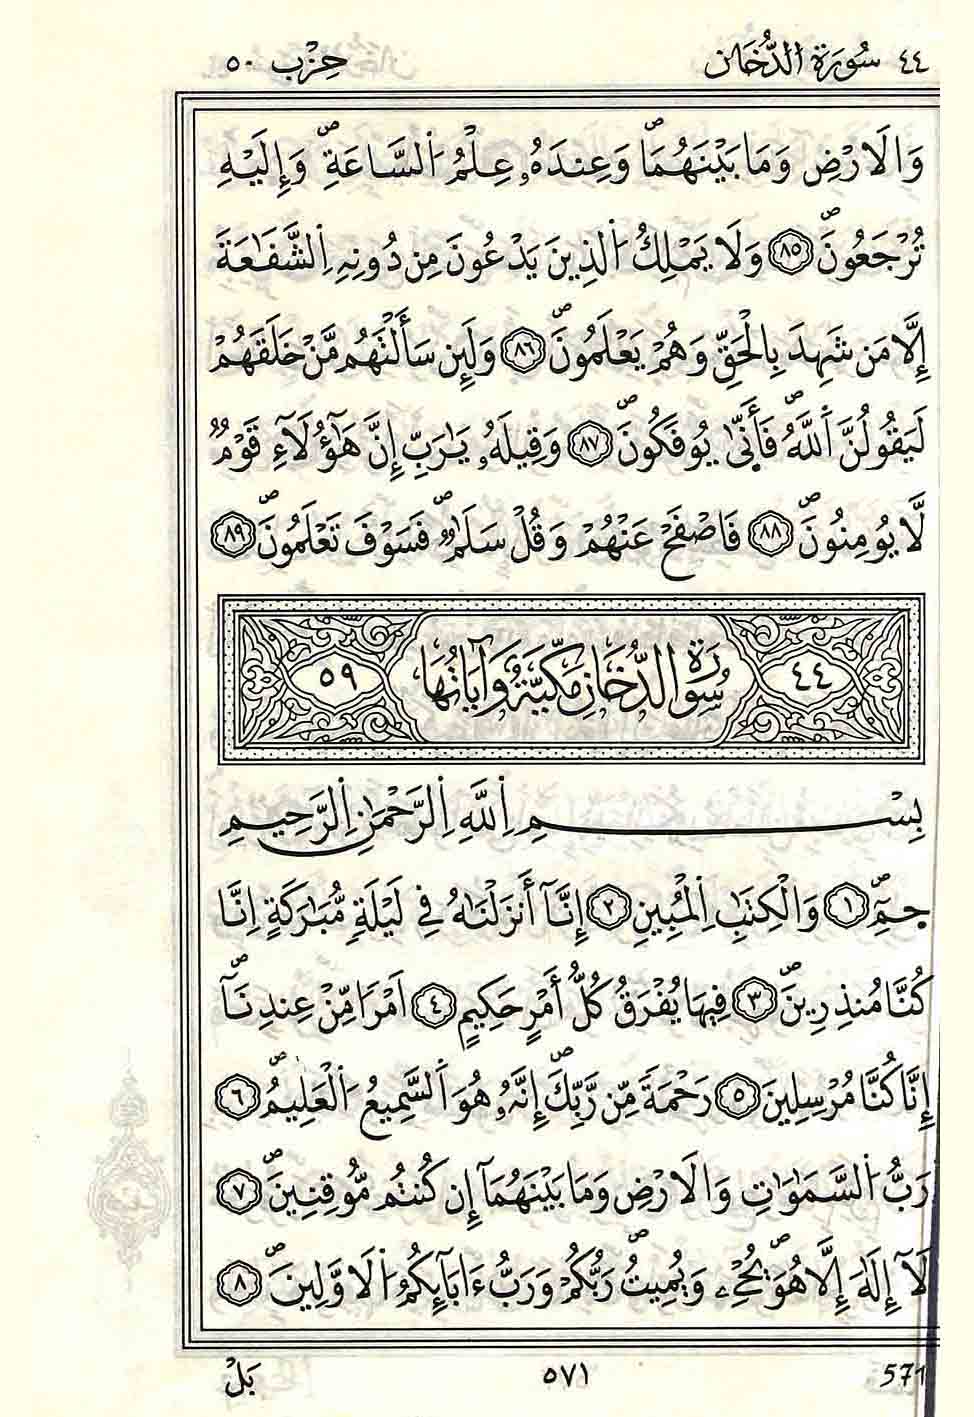 ٤٤ سُورَةُ الدُّخَانِ حِزْب ٥٠
وَالَارْضِ وَمَا بَيْنَهُمَاۖ وَعِندَهُۥ عِلْمُ اَ۬لسَّاعَةِۖ وَإِلَيْهِ
تُرْجَعُونَۖ ٨٥ وَلَا يَمْلِكُ اُ۬لذِينَ يَدْعُونَ مِن دُونِهِ اِ۬لشَّفَٰعَةَ
إِلَّا مَن شَهِدَ بِالْحَقِّ وَهُمْ يَعْلَمُونَۖ ٨٦ وَلَئِن سَأَلْتَهُم مَّنْ خَلَقَهُمْ
لَيَقُولُنَّ اَ۬للَّهُۖ فَأَنّ۪ىٰ يُوفَكُونَۖ ٨٧ وَقِيلَهُۥ يَٰرَبِّ إِنَّ هَٰٓؤُلَآءِ قَوْمٌ
لَّا يُومِنُونَۖ ٨٨ فَاصْفَحْ عَنْهُمْ وَقُلْ سَلَٰمٌۖ فَسَوْفَ تَعْلَمُونَۖ ٨٩
٤٤ سُورَةُ الدُّخَانِ مَكِّيَّةٌ وَآيَاتُهَا ٥٩
بِسْمِ اِ۬للَّهِ اِ۬لرَّحْمَٰنِ اِ۬لرَّحِيمِ
ح۪مِٓۖ ١ وَالْكِتَٰبِ اِ۬لْمُبِينِ ٢ إِنَّآ أَنزَلْنَٰهُ فِے لَيْلَةٍ مُّبَٰرَكَةٍ اِنَّا
كُنَّا مُنذِرِينَۖ ٣ فِيهَا يُفْرَقُ كُلُّ أَمْرٍ حَكِيمٍ ٤ اَمْراٗ مِّنْ عِندِنَآۖ
إِنَّا كُنَّا مُرْسِلِينَ ٥ رَحْمَةٗ مِّن رَّبِّكَۖ إِنَّهُۥ هُوَ اَ۬لسَّمِيعُ اُ۬لْعَلِيمُۖ ٦
رَبُّ اُ۬لسَّمَٰوَٰتِ وَالَارْضِ وَمَا بَيْنَهُمَآ إِن كُنتُم مُّوقِنِينَۖ ٧
لَآ إِلَٰهَ إِلَّا هُوَۖ يُحْيِۦ وَيُمِيتُۖ رَبُّكُمْ وَرَبُّ ءَابَآئِكُمُ اُ۬لَاوَّلِينَۖ ٨
571 ٥٧١ بَلْ